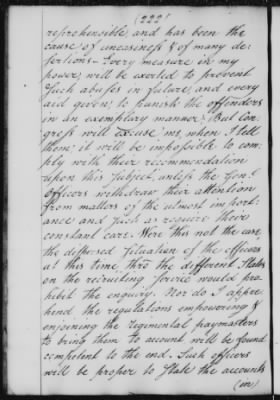 (222)
reprehensible, and has been the
cause of uneasiness & of many de-
sertions – Every measure in my
power, will be exerted to prevent
such abuses in future, and every
aid given, to punish the offenders
in an exemplary manner. But Con-
gress will excuse me, when I tell
them, it will be impossible to com-
ply with their recommendation
upon this subject, unless the Genl
Officers withdraw their attention
from matters of the utmost import-
ance and such as require their
constant care. Were this not the case
the dispersed situation of the officers
at this time, thro the different States
on the recruiting service would pro-
hibit the enquiry. Nor do I appre-
hend, the regulations empowering &
enjoining the regimental paymasters
to bring them to account will be found
competent to the end. Such officers
will be proper to state the accounts
(in)